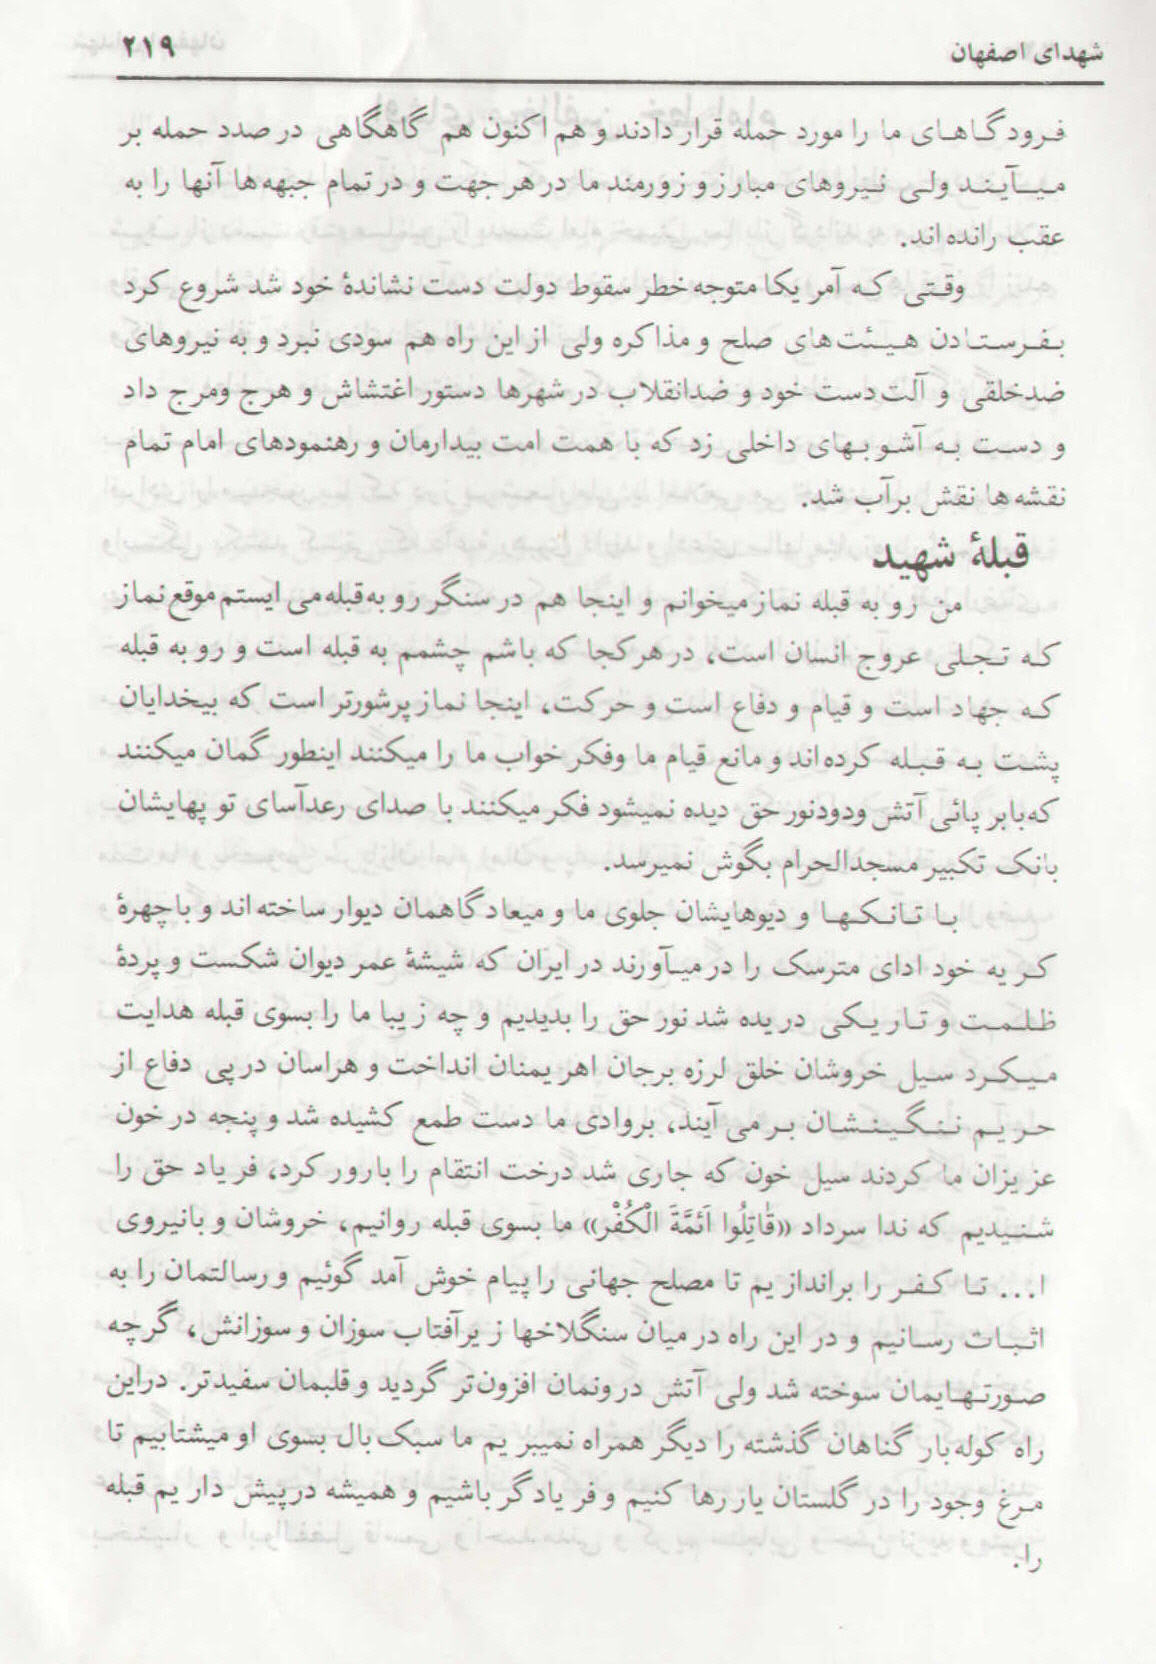 شهدای اصفهان ۲۱۹
فرودگاهای ما را مورد حمله قرار دادند و هم اکنون هم گاهگاهی در صدد حمله بر
میآیند ولی نیروهای مبارز و زورمند ما در هر جهت و در تمام جبهه‌ها آنها را به
عقب رانده‌اند.
وقتی که آمریکا متوجه خطر سقوط دولت دست نشاندهٔ خود شد شروع کرد
بفرستادن هیئت‌های صلح و مذاکره ولی از این راه هم سودی نبرد و به نیروهای
ضدخلقی و آلت دست خود و ضدانقلاب در شهرها دستور اغتشاش و هرج ومرج داد
و دست به آشوبهای داخلی زد که با همت امت بیدارمان و رهنمودهای امام تمام
نقشه‌ها نقش برآب شد.
قبلهٔ شهید
من رو به قبله نماز میخوانم و اینجا هم در سنگر رو به قبله می ایستم موقع نماز
که تجلی عروج انسان است، در هر کجا که باشم چشمم به قبله است و رو به قبله
که جهاد است و قیام و دفاع است و حرکت، اینجا نماز پرشورتر است که بیخدایان
پشت به قبله کرده‌اند و مانع قیام ما وفکر خواب ما را میکنند اینطور گمان میکنند
که بابر پائی آتش ودودنور حق دیده نمیشود فکر میکنند با صدای رعدآسای توپهایشان
بانک تکبیر مسجدالحرام بگوش نمیرسد.
با تانکها و دیوهایشان جلوی ما و میعادگاهمان دیوار ساخته‌اند و با چهرهٔ
کریه خود ادای مترسک را در میآورند در ایران که شیشهٔ عمر دیوان شکست و پردهٔ
ظلمت و تاریکی دریده شد نور حق را بدیدیم و چه زیبا ما را بسوی قبله هدایت
میکرد سیل خروشان خلق لرزه برجان اهریمنان انداخت و هراسان در پی دفاع از
حریم ننگینشان بر می آیند، بروادی ما دست طمع کشیده شد و پنجه در خون
عزیزان ما کردند سیل خون که جاری شد درخت انتقام را بارور کرد، فریاد حق را
شنیدیم که ندا سرداد «قَاتِلُوا اَئمَّةَ الْکُفْر» ما بسوی قبله روانیم، خروشان و بانیروی
ا... تا کفر را براندازیم تا مصلح جهانی را پیام خوش آمد گوئیم و رسالتمان را به
اثبات رسانیم و در این راه در میان سنگلاخها زیر آفتاب سوزان و سوزانش، گرچه
صورتهایمان سوخته شد ولی آتش درونمان افزون‌تر گردید و قلبمان سفیدتر. دراین
راه کوله‌بار گناهان گذشته را دیگر همراه نمیبریم ما سبک بال بسوی او میشتابیم تا
مرغ وجود را در گلستان یار رها کنیم و فریادگر باشیم و همیشه در پیش داریم قبله
را.